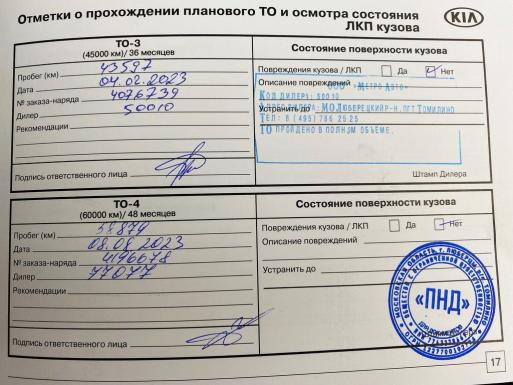 Отметки о прохождении планового ТО и осмотра состояния
ЛКП кузова
KIA
ТО-3
(45000 км)/ 36 месяцев
Состояние поверхности кузова
Пробег (км) 43597
Дата 04.02.2023
№ заказа-наряда 4076739
Дилер 50010
Рекомендации
Подпись ответственного лица
Повреждения кузова / ЛКП Да Нет
Описание повреждений
ООО "Метро Авто"
Код дилера: 50010
Устранить до
Адрес дилера: МО Люберецкий р-н, пгт Томилино
Тел: 8 (495) 786 2525
ТО пройдено в полном объеме.
Штамп Дилера
ТО-4
(60000 км)/ 48 месяцев
Состояние поверхности кузова
Пробег (км) 58879
Дата 08.08.2023
№ заказа-наряда 4196678
Дилер 77077
Рекомендации
Подпись ответственного лица
Повреждения кузова / ЛКП Да Нет
Описание повреждений
Устранить до
«ПНД»
17